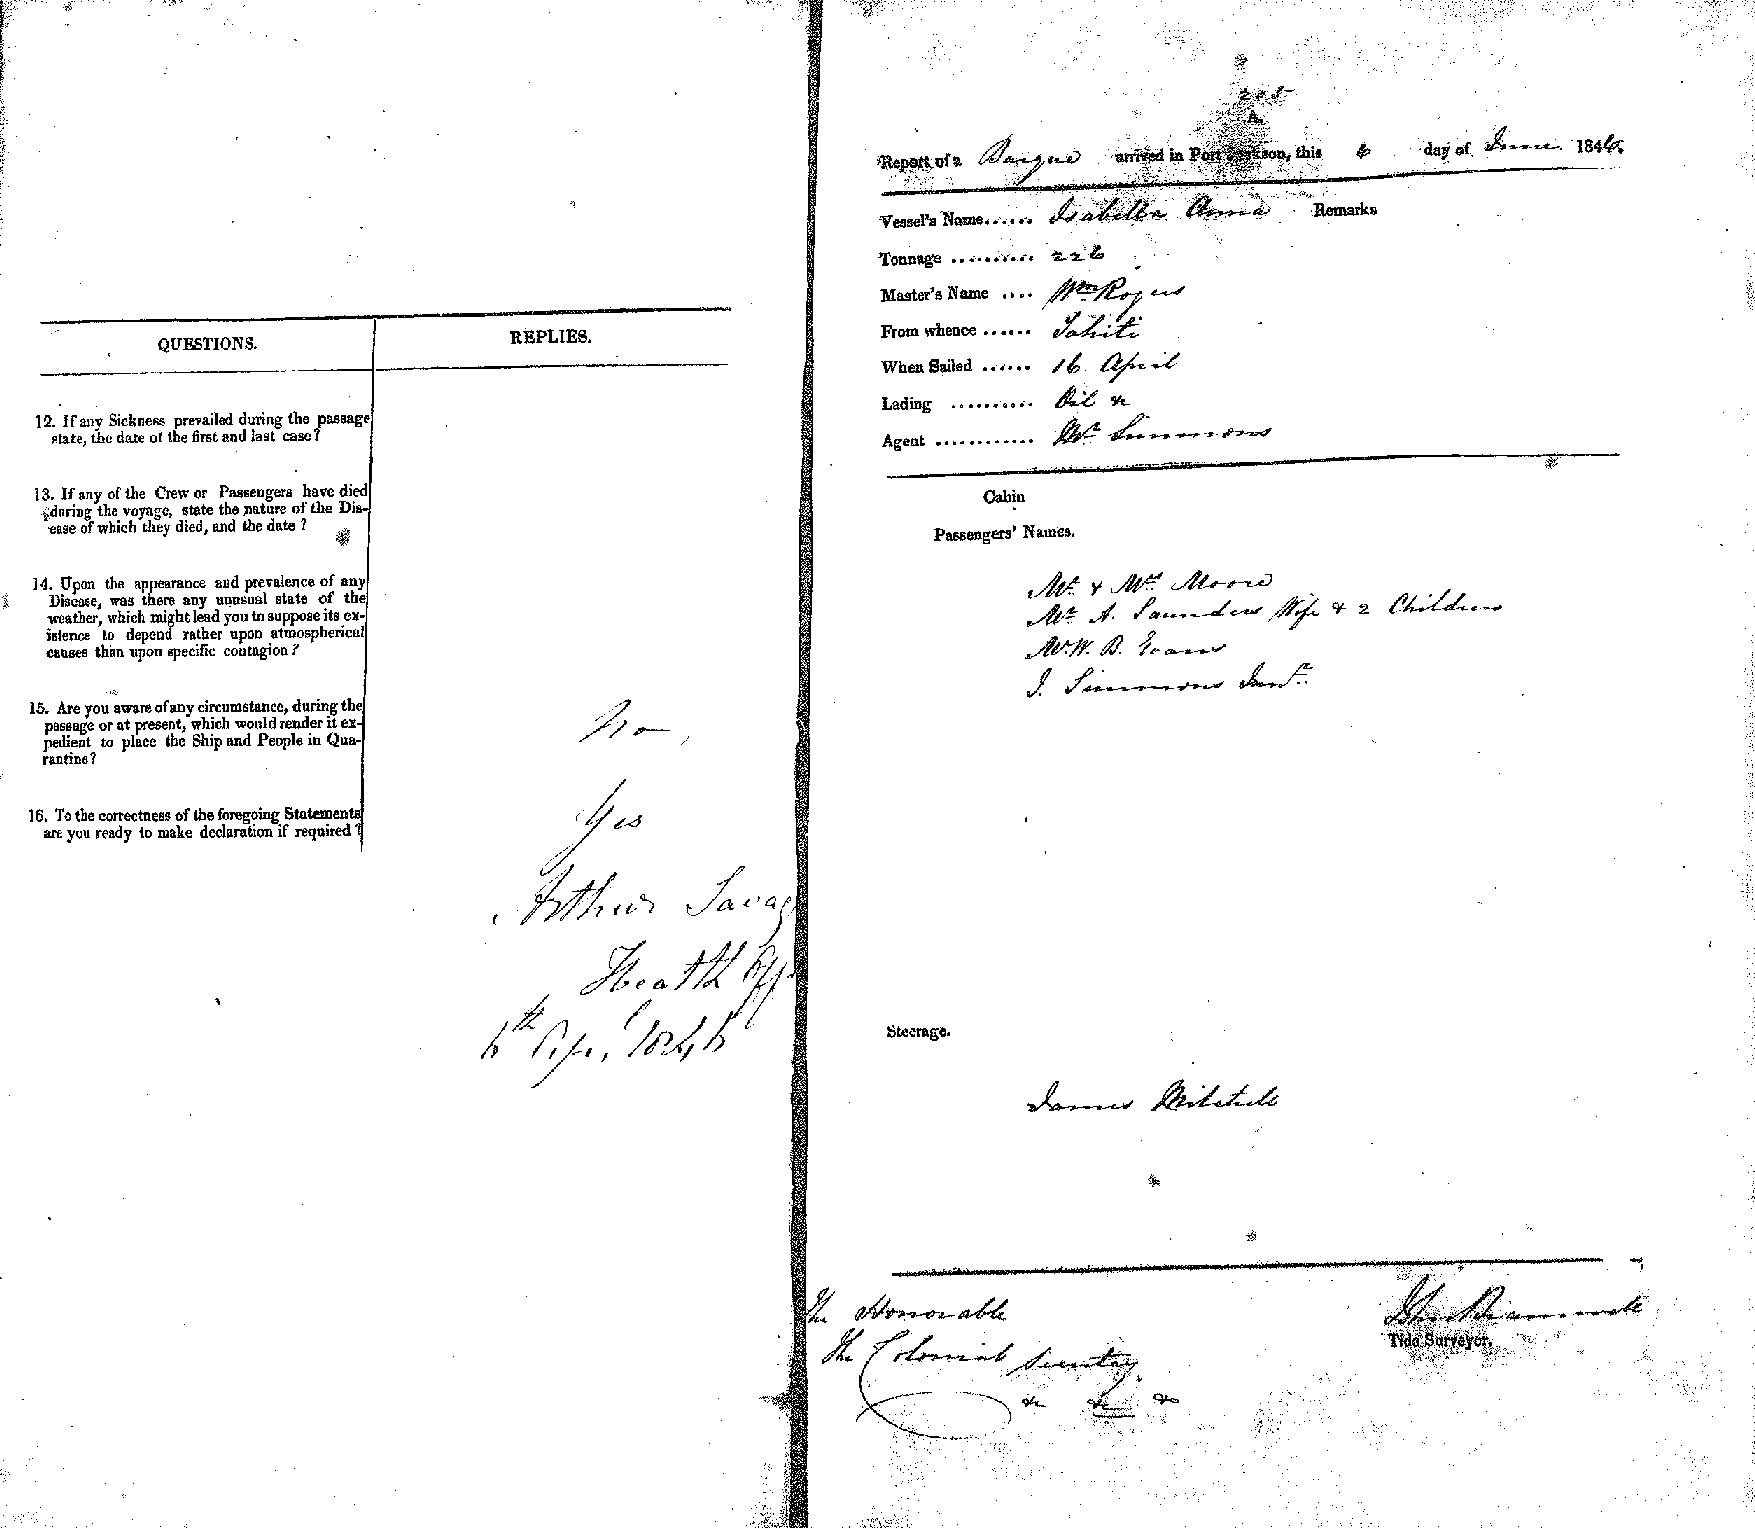 QUESTIONS.
REPLIES.
12. If any Sickness prevailed during the passage
state, the date of the first and last case?
13. If any of the Crew or Passengers have died
during the voyage, state the nature of the Dis-
ease of which they died, and the date?
14. Upon the appearance and prevalence of any
Disease, was there any unusual state of the
weather, which might lead you to suppose its ex-
istence to depend rather upon atmospherical
causes than upon specific contagion?
15. Are you aware of any circumstance, during the
passage or at present, which would render it ex-
pedient to place the Ship and People in Qua-
rantine?
No,
16. To the correctness of the foregoing Statements
are you ready to make declaration if required?
Yes
Arthur Savag
Health Off
6th 1846
205
A.
Report of a Barque arrived in Port Jackson, this 6 day of June 1846.
Vessel's Name...... Isabella Anna Remarks
Tonnage .......... 226
Master's Name .... Wm Rogers
From whence ...... Tahiti
When Sailed ...... 16 April
Lading .......... Oil &c
Agent ............ Mr Simmons
Cabin
Passengers' Names.
Mr & Mrs Moore
Mr A. Saunders Wife & 2 Children
Mr W. B. Evans
J. Simmons Junr.
Steerage.
James Mitchell
The Honorable
The Colonial Secretary
&c &c &c
Tide Surveyor.